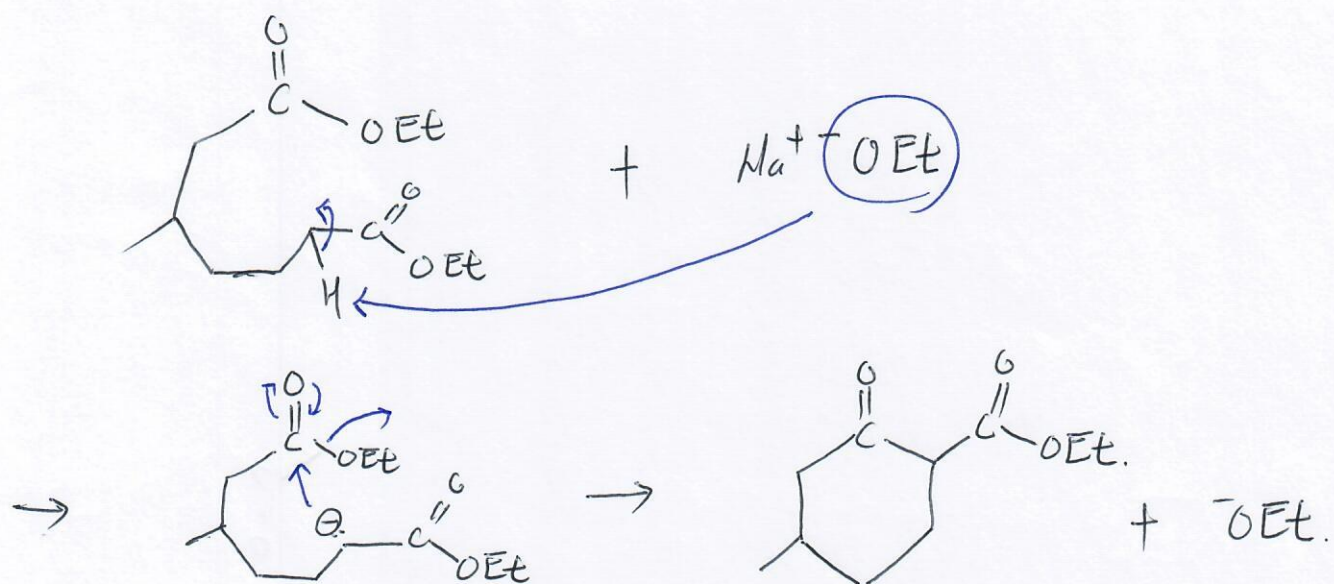 O
C
OEt
+ Na⁺ ⁻OEt
C O
OEt
H
→ O
C
OEt
⊖
C O
OEt
→ O
C
C O
OEt.
+ ⁻OEt.